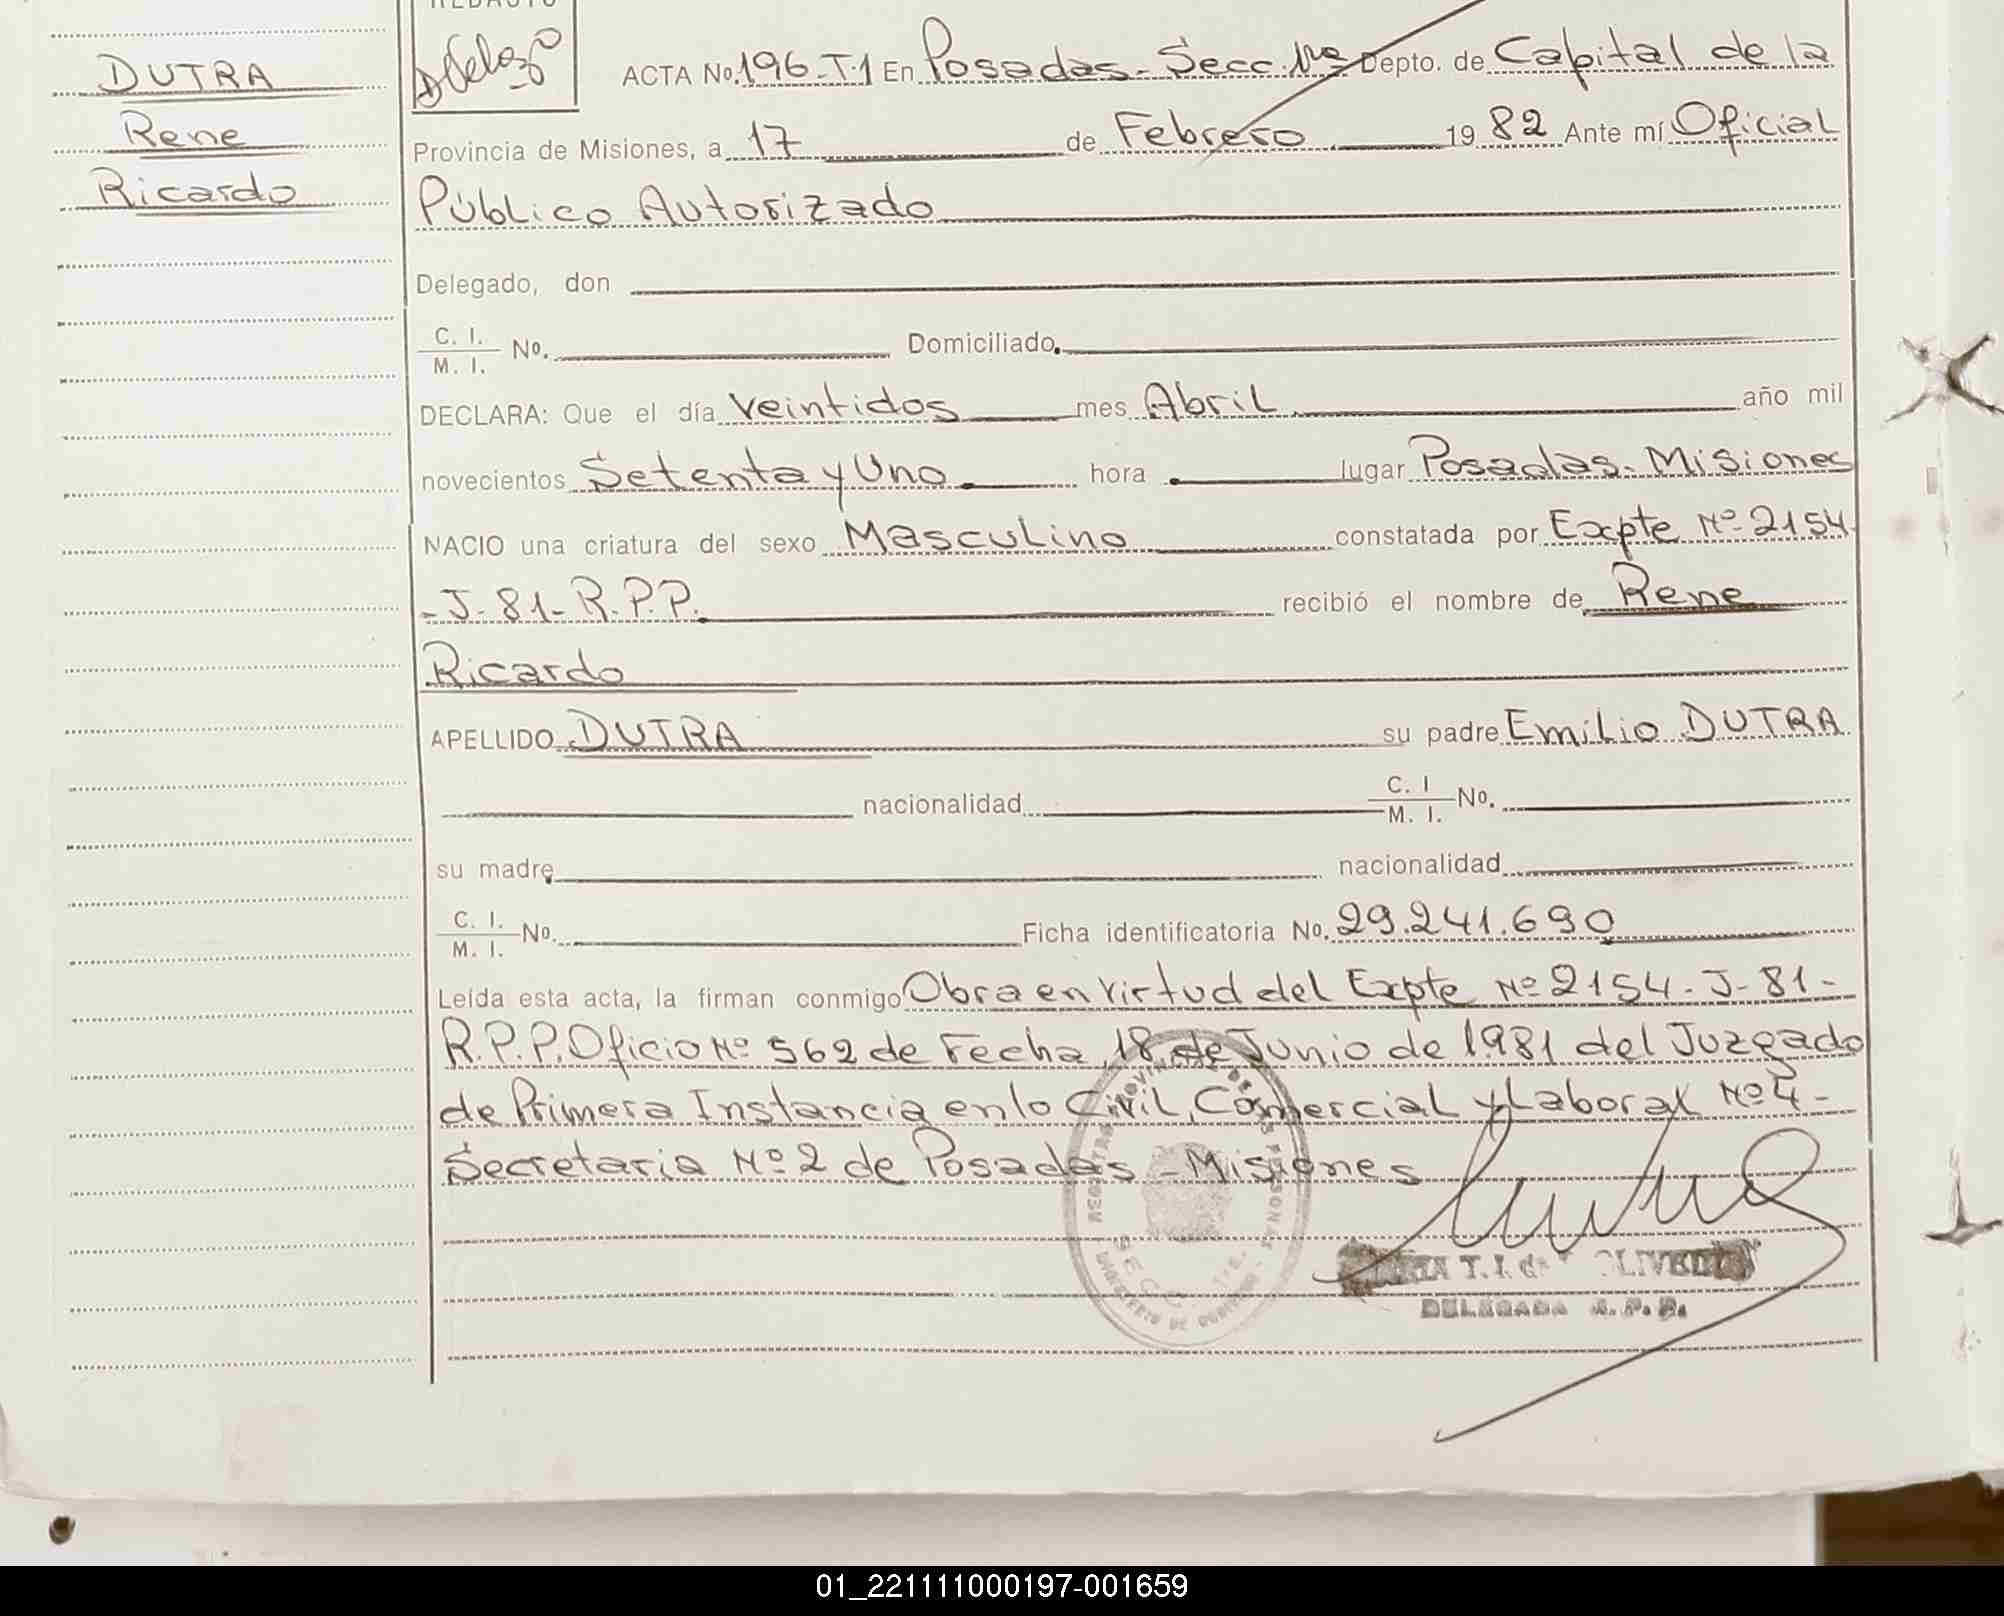 REDACTO
DUTRA
Rene
Ricardo
ACTA No. 196-T.1 En Posadas-Secc. 1ra Depto. de Capital de la
Provincia de Misiones, a 17 de Febrero 19 82 Ante mí Oficial
Público Autorizado
Delegado, don
C. I.
M. I. No. Domiciliado
DECLARA: Que el día veintidos mes Abril año mil
novecientos Setenta y Uno. hora lugar Posadas-Misiones
NACIO una criatura del sexo Masculino constatada por Expte Nº 2154-
-J-81-R.P.P. recibió el nombre de Rene
Ricardo
APELLIDO DUTRA su padre Emilio DUTRA
nacionalidad C. I
M. I. No.
su madre nacionalidad
C. I.
M. I. No. Ficha identificatoria No. 29.241.690
Leída esta acta, la firman conmigo Obra en virtud del Expte Nº 2154-J-81-
R.P.P. Oficio Nº 562 de Fecha 18 de Junio de 1981 del Juzgado
de Primera Instancia en lo Civil, Comercial y Laboral Nº 4-
Secretaria Nº 2 de Posadas-Misiones
T. I. de
DELEGADA R. P. P.
01_221111000197-001659